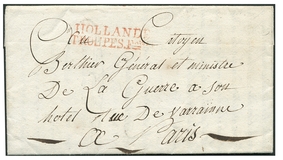 HOLLANDE
TROUPES.F.ses
Au Citoyen
Berthier Général et ministre
De La Guerre a son
hotel Rue De Varrainne
A Paris